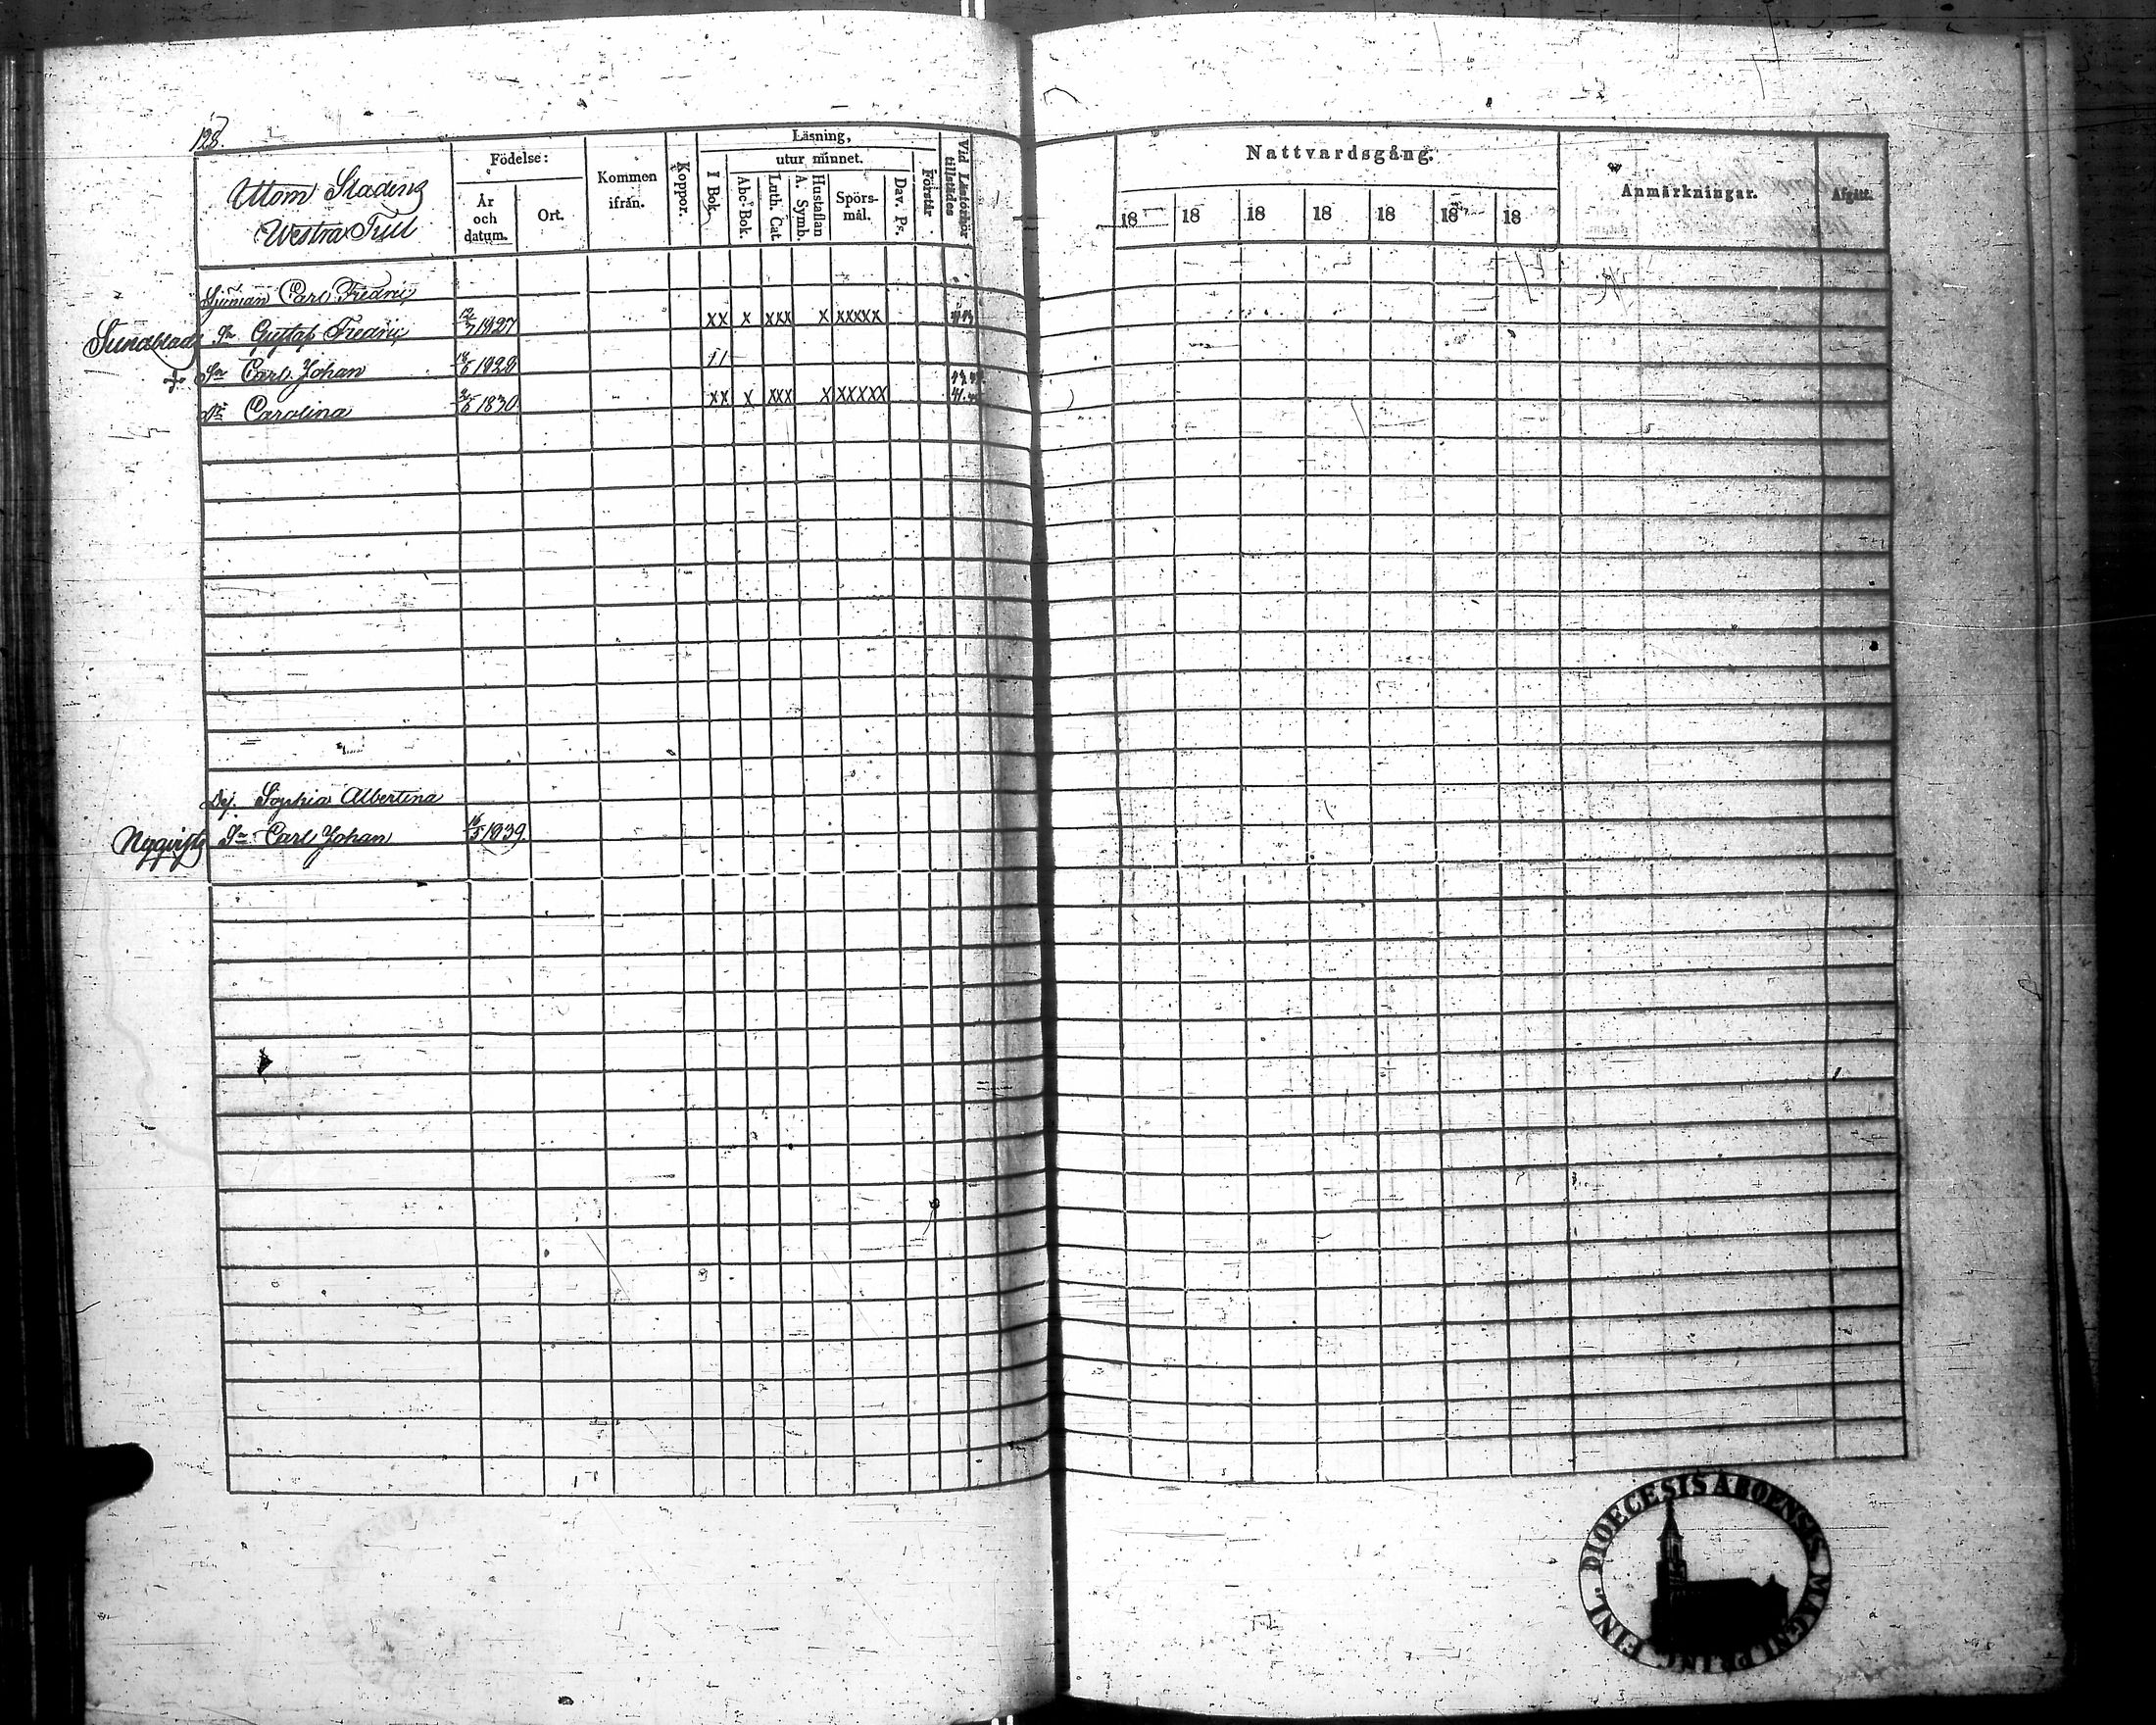 128.
Utom Stadens
Westra Tull
Födelse:
År och datum.
Ort.
Kommen ifrån.
Koppor.
Läsning,
I Bok.
utur minnet.
Abc-Bok.
Luth. Cat.
A. Symb.
Hustaflan
Spörsmål.
Dav. Ps.
Förstår
Vid Läsförhör tillstädes
Nattvardsgång.
18 18 18 18 18 18 18
Anmärkningar.
Afgått.
Sjöman Carl Fredric
Sundblad Sn Gustaf Fredric 12/7 1827 xx x xxx x xxxxx
+ Sn Carl Johan 18/6 1828 11
Dr Carolina 3/6 1830 xx x xxx x xxxxx 41.
Dej. Sophia Albertina
Nyqvist Sn Carl Johan 16/5 1839
DIOECESIS ABOENSIS MAGNI PRINC. FINL.